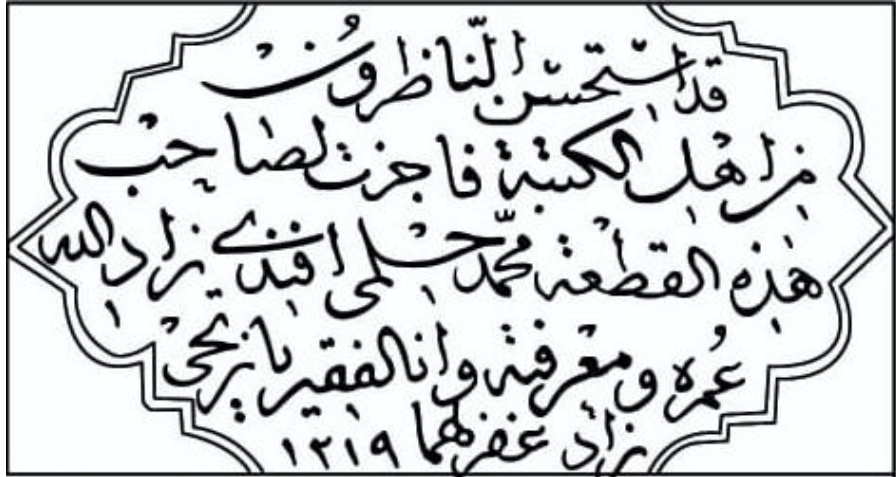 قد استحسن الناظرون
من اهل الكتبة فاجزت لصاحب
هذه القطعة محمد حلمي افندي زاد الله
عمره ومعرفته وانا الفقير يازيجي
زاده غفر لهما ١٣١٩